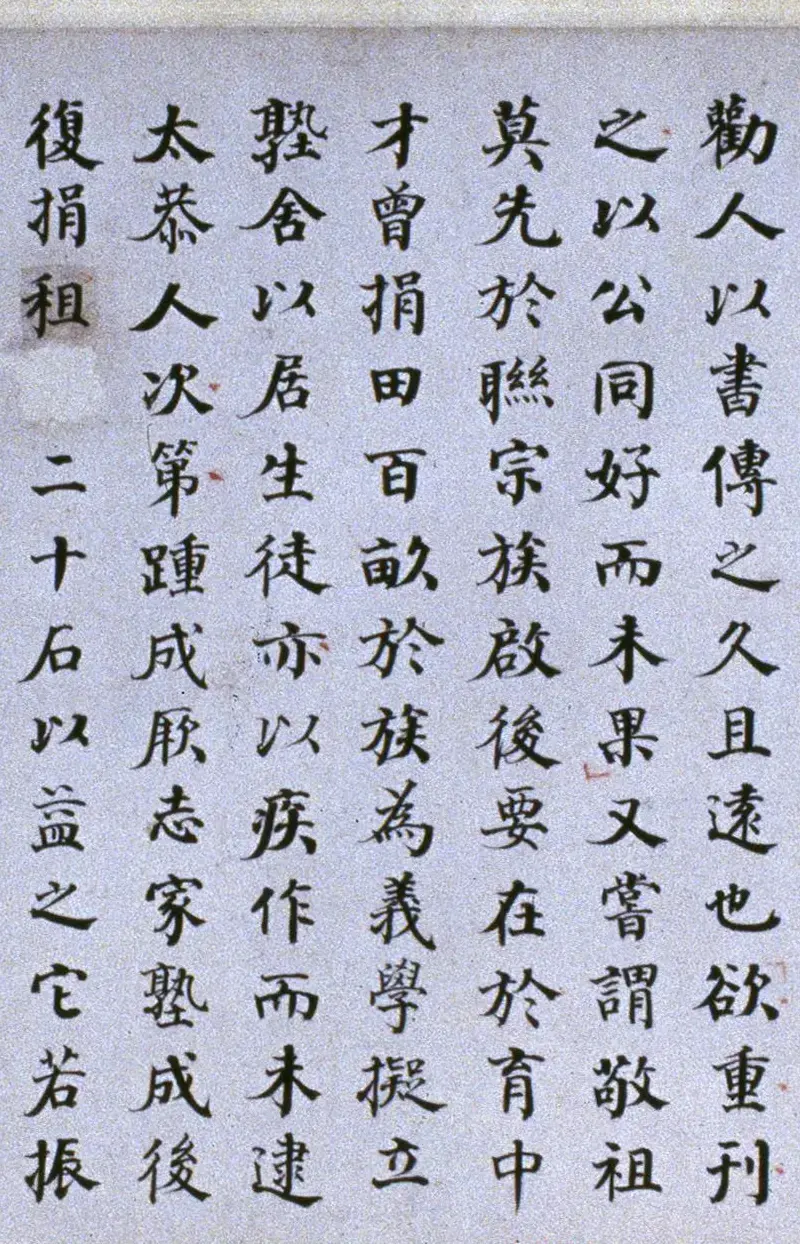 勸人以書傳之久且遠也欲重刊
之以公同好而未果又嘗謂敬祖
莫先於聯宗族啟後要在於育中
才曾捐田百畝於族為義學擬立
塾舍以居生徒亦以疾作而未逮
太恭人次第踵成厥志家塾成後
復捐租二十石以益之它若振